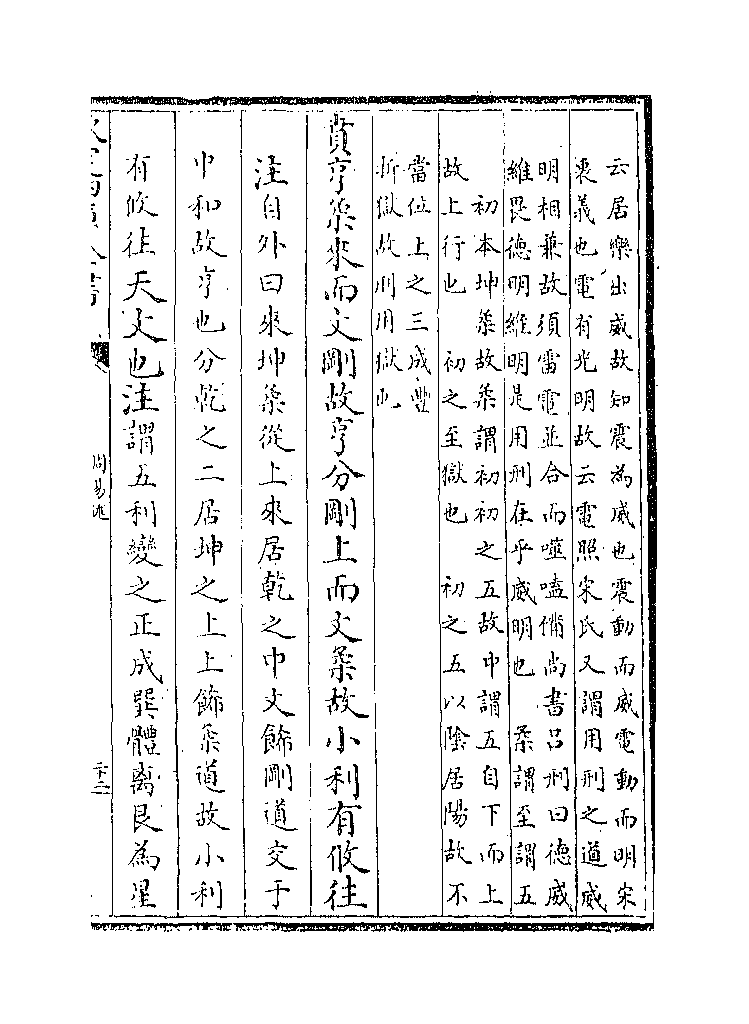 云居樂出威故知震為威也震動而威電動而明宋
衷義也電有光明故云電照宋氏又謂用刑之道威
明相兼故須雷電並合而噬嗑備尚書呂刑曰德威
維畏德明維明是用刑在乎威明也　柔謂至謂五
初本坤柔故柔謂初初之五故中謂五自下而上
故上行也　初之至獄也　初之五以陰居陽故不
當位上之三成豐
折獄故利用獄也
賁亨柔來而文剛故亨分剛上而文柔故小利有攸往
注自外曰來坤柔從上來居乾之中文飾剛道交于
中和故亨也分乾之二居坤之上上飾柔道故小利
有攸往天文也注謂五利變之正成巽體离艮為星
周易述